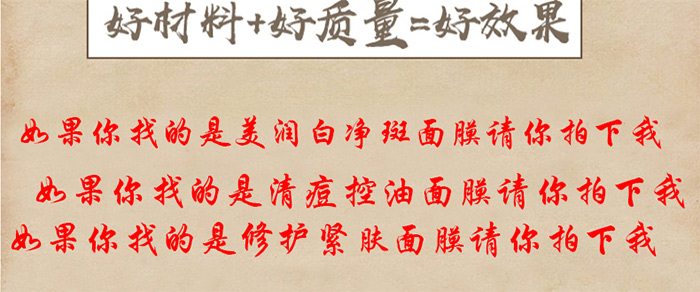 好材料+好质量=好效果
如果你找的是美润白净斑面膜请你拍下我
如果你找的是清痘控油面膜请你拍下我
如果你找的是修护紧肤面膜请你拍下我